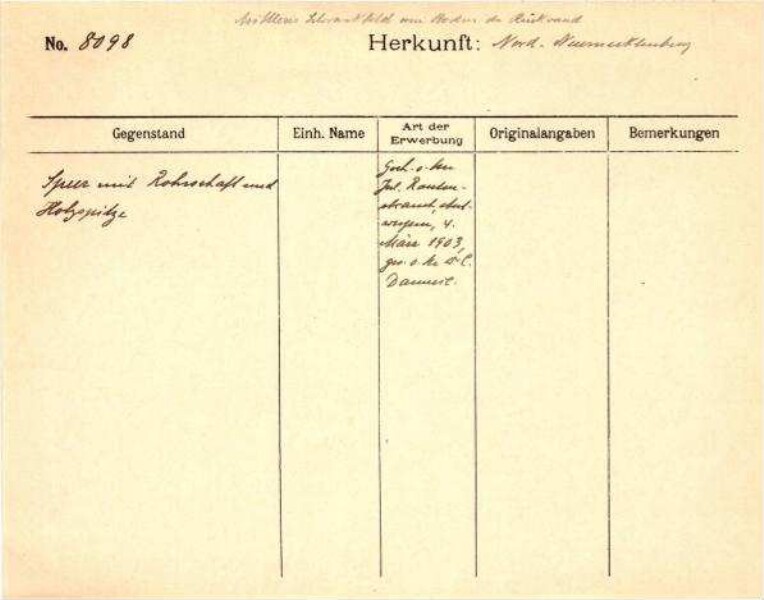 Mittleres Schrankfeld am Boden der Rückwand
No. 8098
Herkunft: Nord-Neumecklenburg
Gegenstand
Einh. Name
Art der Erwerbung
Originalangaben
Bemerkungen
Speer mit Rohrschaft und
Holzspitze
Gesch. v.
Jul. Rauten-
strauch,
4.
März 1903,
ges. v.